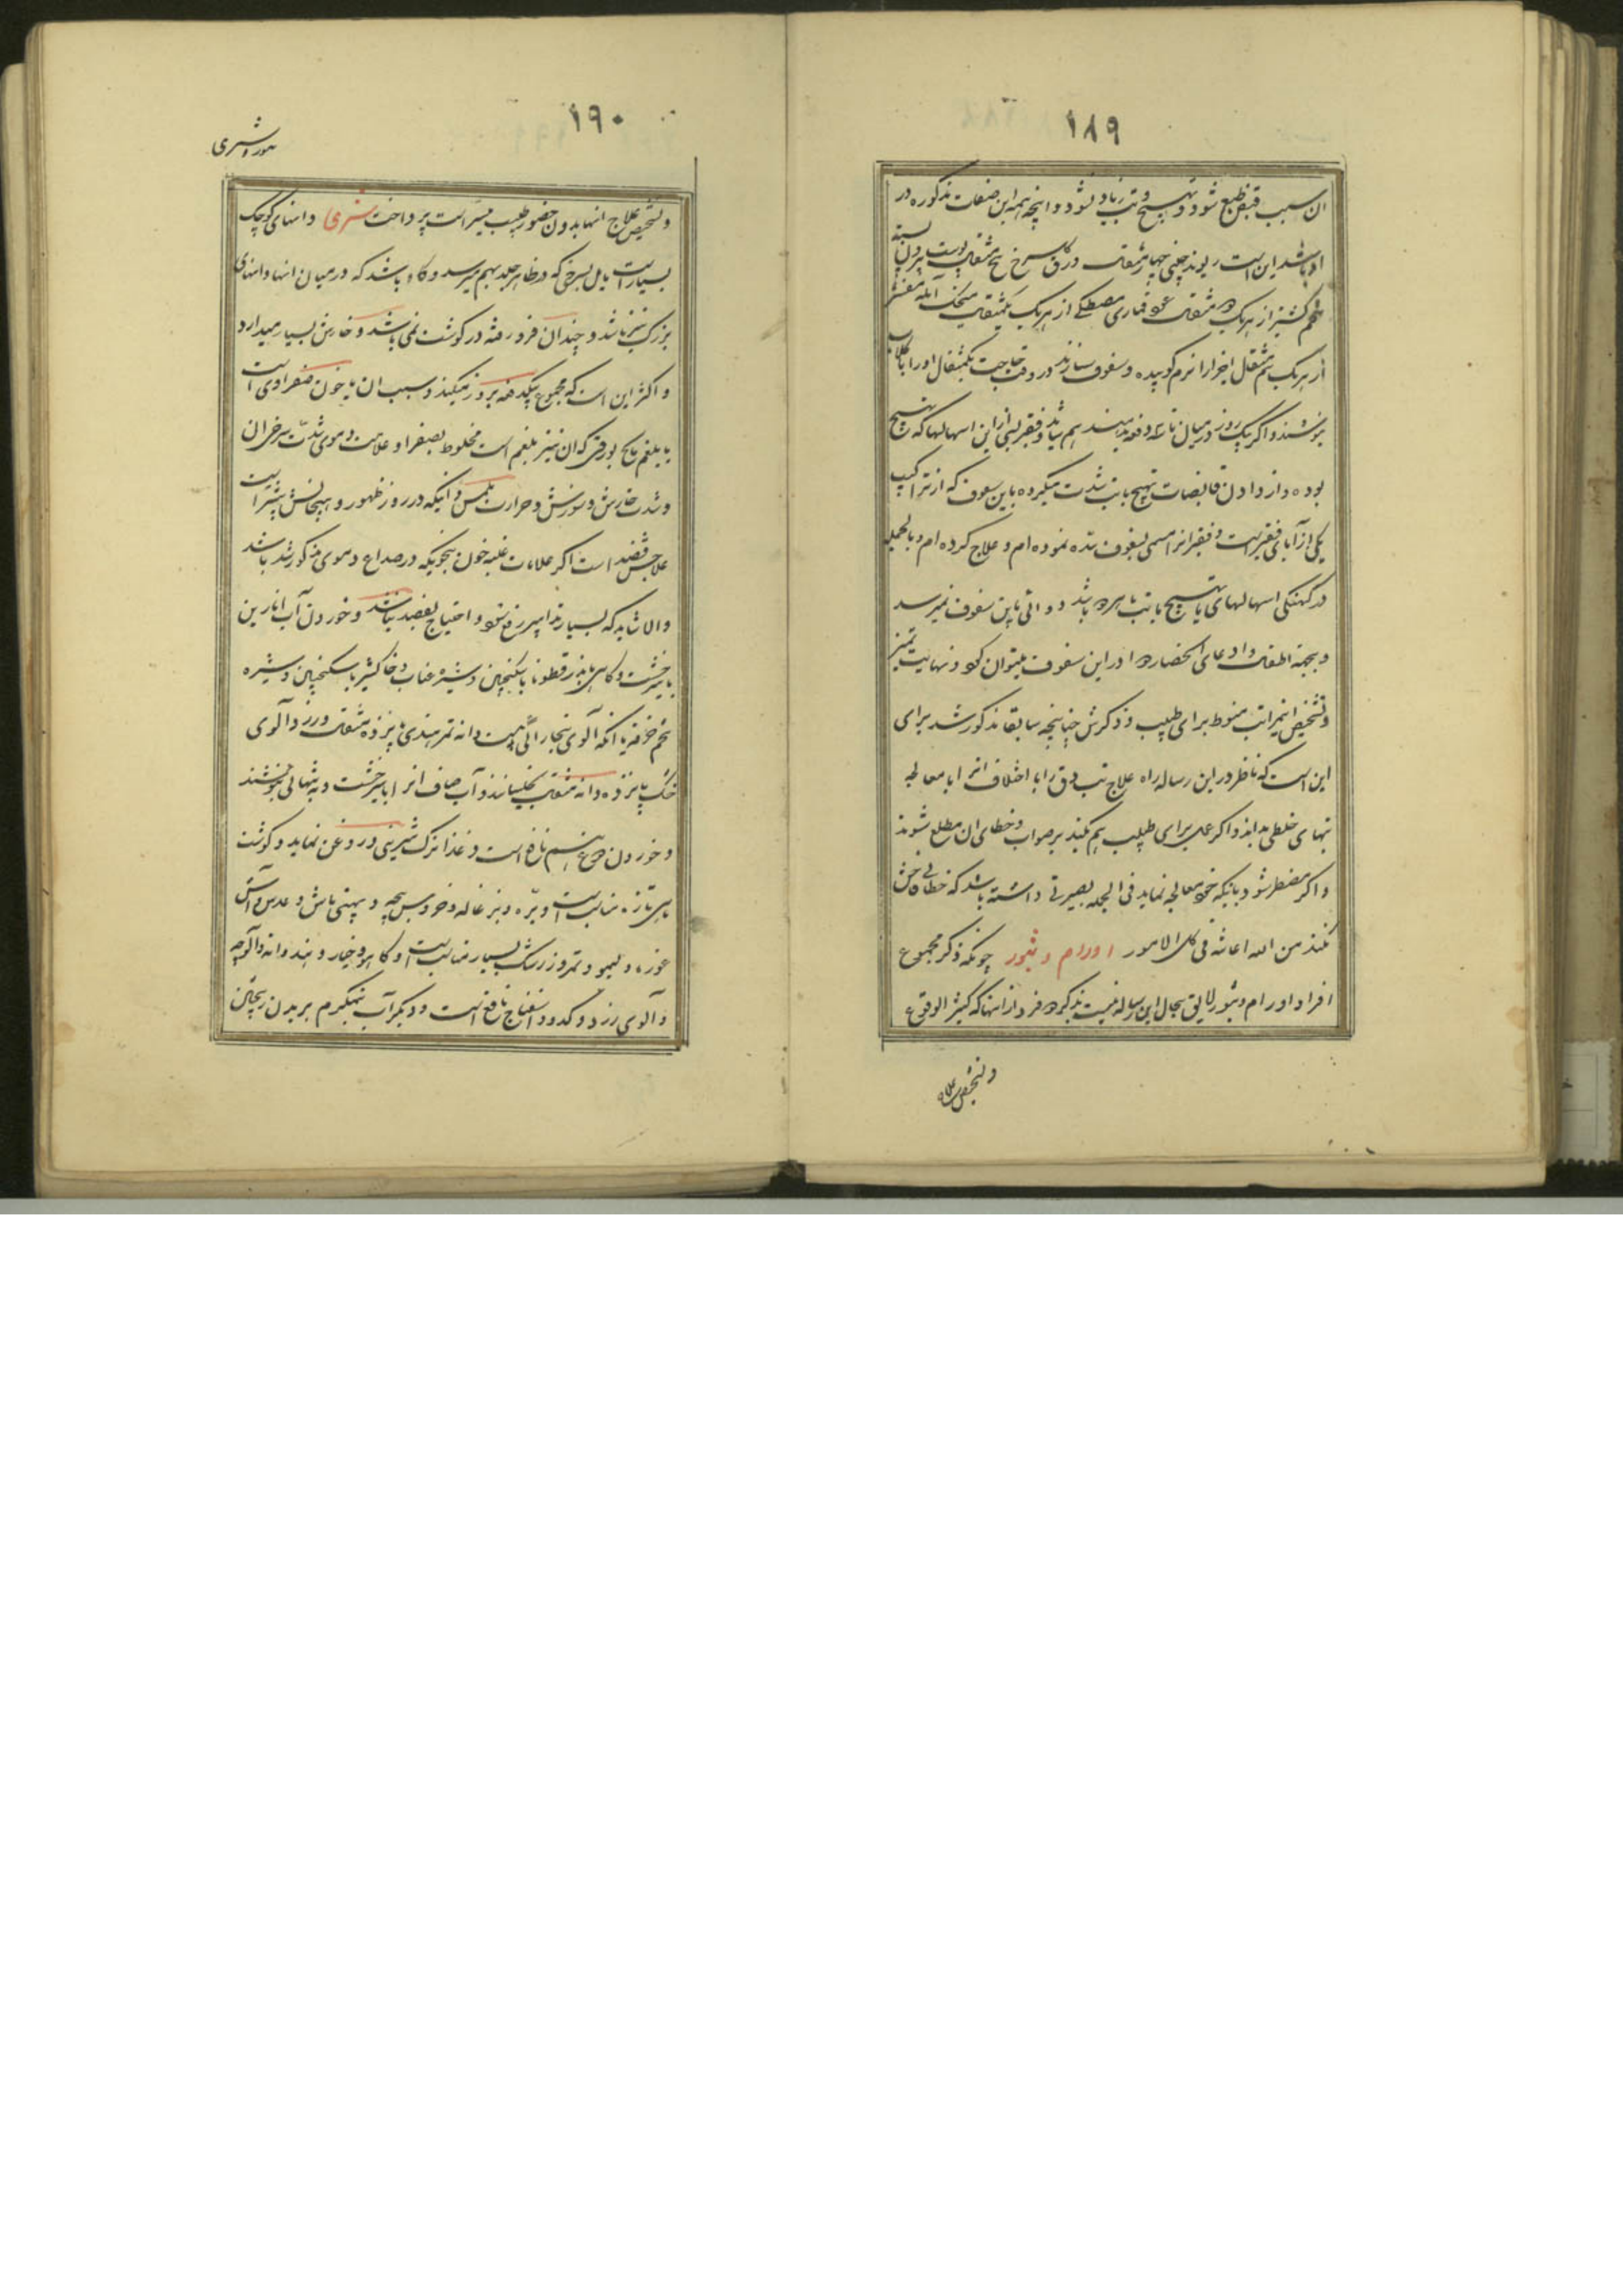 ۱۸۹
ان سبب قبض طبع شود و تهبیج و تب زیاد نشود و انچه همه این صفات مذکوره در
او باشد این است ریوند چینی چهار مثقال ورق گل سرخ پنج مثقال پوست بیرون پسته
تخم کشنیز از هر یک دو مثقال عود قماری مصطکی از هر یک یکمثقال سنجد آمله مقشر
از هر یک نیم مثقال اجزا را نرم کوبیده و سفوف سازند در وقت حاجت یکمثقال اورا با گلاب
بنوشند و اگر یک روز در میان تا سه دفعه بدهند هم شاید و فقیر بسی از این اسهالها که تهبیج
بوده و از دادن قابضات تهبیج با تب شدت میکرده باین سفوف که از تراکیب
یکی از آبای فقیر است و فقیر انرا مسمی بسفوف سده نموده ام و علاج کرده ام و بالجمله
در کهنگی اسهالهای با تهبیج یا تب یا هر دو باشد دوائی باین سفوف نمیرسد
و بجمة اطفال وادعای انحصار دوا در این سفوف میتوان کرد و نهایت تمیز
و تشخیص اینمراتب منوط برای طبیب و ذکرش چنانچه سابقا مذکور شد برای
این است که ناظر در این رساله راه علاج تب دق را با اختلاف انرا با معالجه
تبهای خلطی بداند و اگر عمل برای طبیب هم بکند بر صواب و خطای ان مطلع شوند
و اگر مضطر شود بانیکه خود معالجه نماید فی الجمله بصیرتی داشته باشد که خطای فاحش
نکند من الله اعانة فی کل الامور اورام و بثور چونکه ذکر مجموع
افراد اورام و بثور لایق بحال این رساله نیست بذکر دو فرد از انها که کثیر الوقوع
و تشخیص علاج
۱۹۰
شری
و تشخیص علاج انها بدون حضور طبیب میسر است پرداخت شری دانهای کوچک
بسیار است مایل بسرخی که در ظاهر جلد بهم میرسد و گاه باشد که در میان انها دانهای
بزرگ نیز باشد و چندان فرو رفته در گوشت نمی باشد و خارش بسیار میدارد
و اکثر این است که مجموع بیکدفعه بروز میکند و سبب ان یا خون صفراوی است
یا بلغم مالح بورقی که ان نیز بلغم است مخلوط بصفرا و علامت دموی شدت سرخی ان
و شدت خارش و سوزش و حرارت ملمس و اینکه در روز ظهور و هیجانش بیشتر است
علاجش فصد است اگر علامات غلبه خون بنحویکه در صداع دموی مذکور شد باشد
والا شاید که بسیار تدابیر رفع شود و احتیاج بفصد نباشد و خوردن آب انارین
با شیرخشت و کاسنی با بذر قطونا با سکنجبین و شیره عناب و خاکشیر با سکنجبین و شیره
تخم خرفه یا انکه آلوی بخارائی بیست دانه تمر هندی پانزده مثقال و زردآلوی
خشک پانزده دانه مثقال بخیسانند و آب صاف انرا با شیرخشت و به تنهائی بنوشند
و خوردن دوغ هم نافع است و غذا ترک شیرینی و روغن نماید و گوشت
ماهی تازه مناسب است و بره و بزغاله و خروس بچه و پهتی ماش و عدس و آش
غوره و لیمو و تمر و زرشک بسیار مناسب است و کاهو و خیار و هندوانه و آلوچه
و آلوی زرد و کدو و اسفناج نافع است و دیگر آب نیمگرم بر بدن ریختن